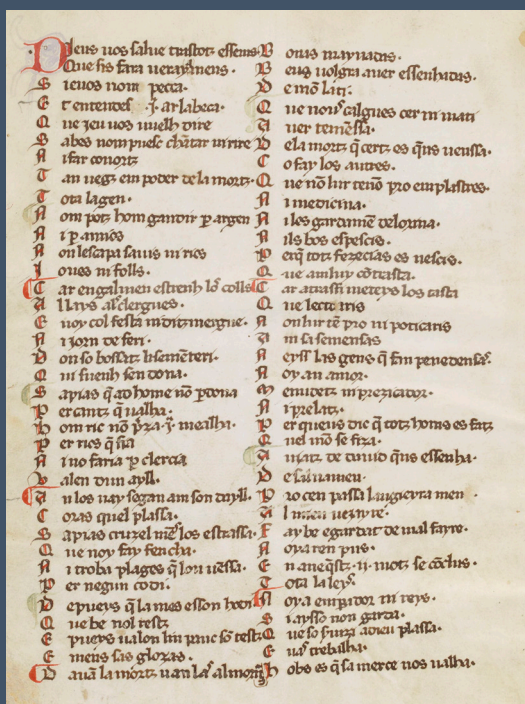 Deus uos salue trastotz essems
Que fis fara uerayamens.
S ieuos nom pecca.
E t entendes .j. arlabeca.
Q ue ieu uos uuelh dire
S abes nom puesc chātar ni rire
A ifar conortz
T an ueg em poder de la mortz.
T ota la gen.
N om pot hom gandir per argen
N i p amios
N on lescapa sauis ni ricx
J oues ni folls.
C ar engalmen estrenh lo colls
A l lays als clergues.
E uoy col festa ni dimergue.
N i iorn de feri.
D on so bossat li sementeri.
Q ui fuenh sen dona.
S apias q ad home nō pdona
P er cant q ualha.
H om ric nō preza .j. mealha.
P er ricx q sia
N i uo faria p clercia
V alen dun ayll.
A n los uay segan am son dayll.
C oras quel plassa.
S apias cruzelmēs los estrassa.
Q ue noy fay fencha.
N i troba plages q lon uessa.
P er negun codi.
D epueys q la mes el son hodi
Q ue be nol testz
E pueys ualon li panc so testz
E mens sas glozas.
D auā la mortz uan las almoynas
B onas maynadas.
B eus uolgra auer essenhadas.
D e mō liti.
Q ue nous calgues cer in mati
A uer temessa.
D e la mortz q certz es quis uenssa.
C o fay los autres.
Q ue nō lur tenō pro emplastres.
N i medicina.
N i los gardamē de lorina.
N i ls bos especis.
P erq totz fezecias es nescis.
Q ue am luy cōtrasta.
C ar atrassi meteys los tasta
Q ue lectoaris
N on lur tē pro ni poticaris
A m sa semensas
A yssi las gens q fan penedensas.
N oy an amor.
M enudetz ni prezicador.
N i prelatz.
P er que us dic q totz homs es fatz
Q uel mō se fiza.
A matz de cuiud quis essenha.
D e
P ro cen passa
A l mieu ueiayre.
F ay be egardat de mal fayre.
N oya ren pus.
E n aquest .ij. motz se cōclus.
T ota la leys.
N oy a emperador ni reys.
S i aysso non garda.
Q ue so faita adieu plassa.
E uas trebalha.
H obs es q sa merce uos ualha.